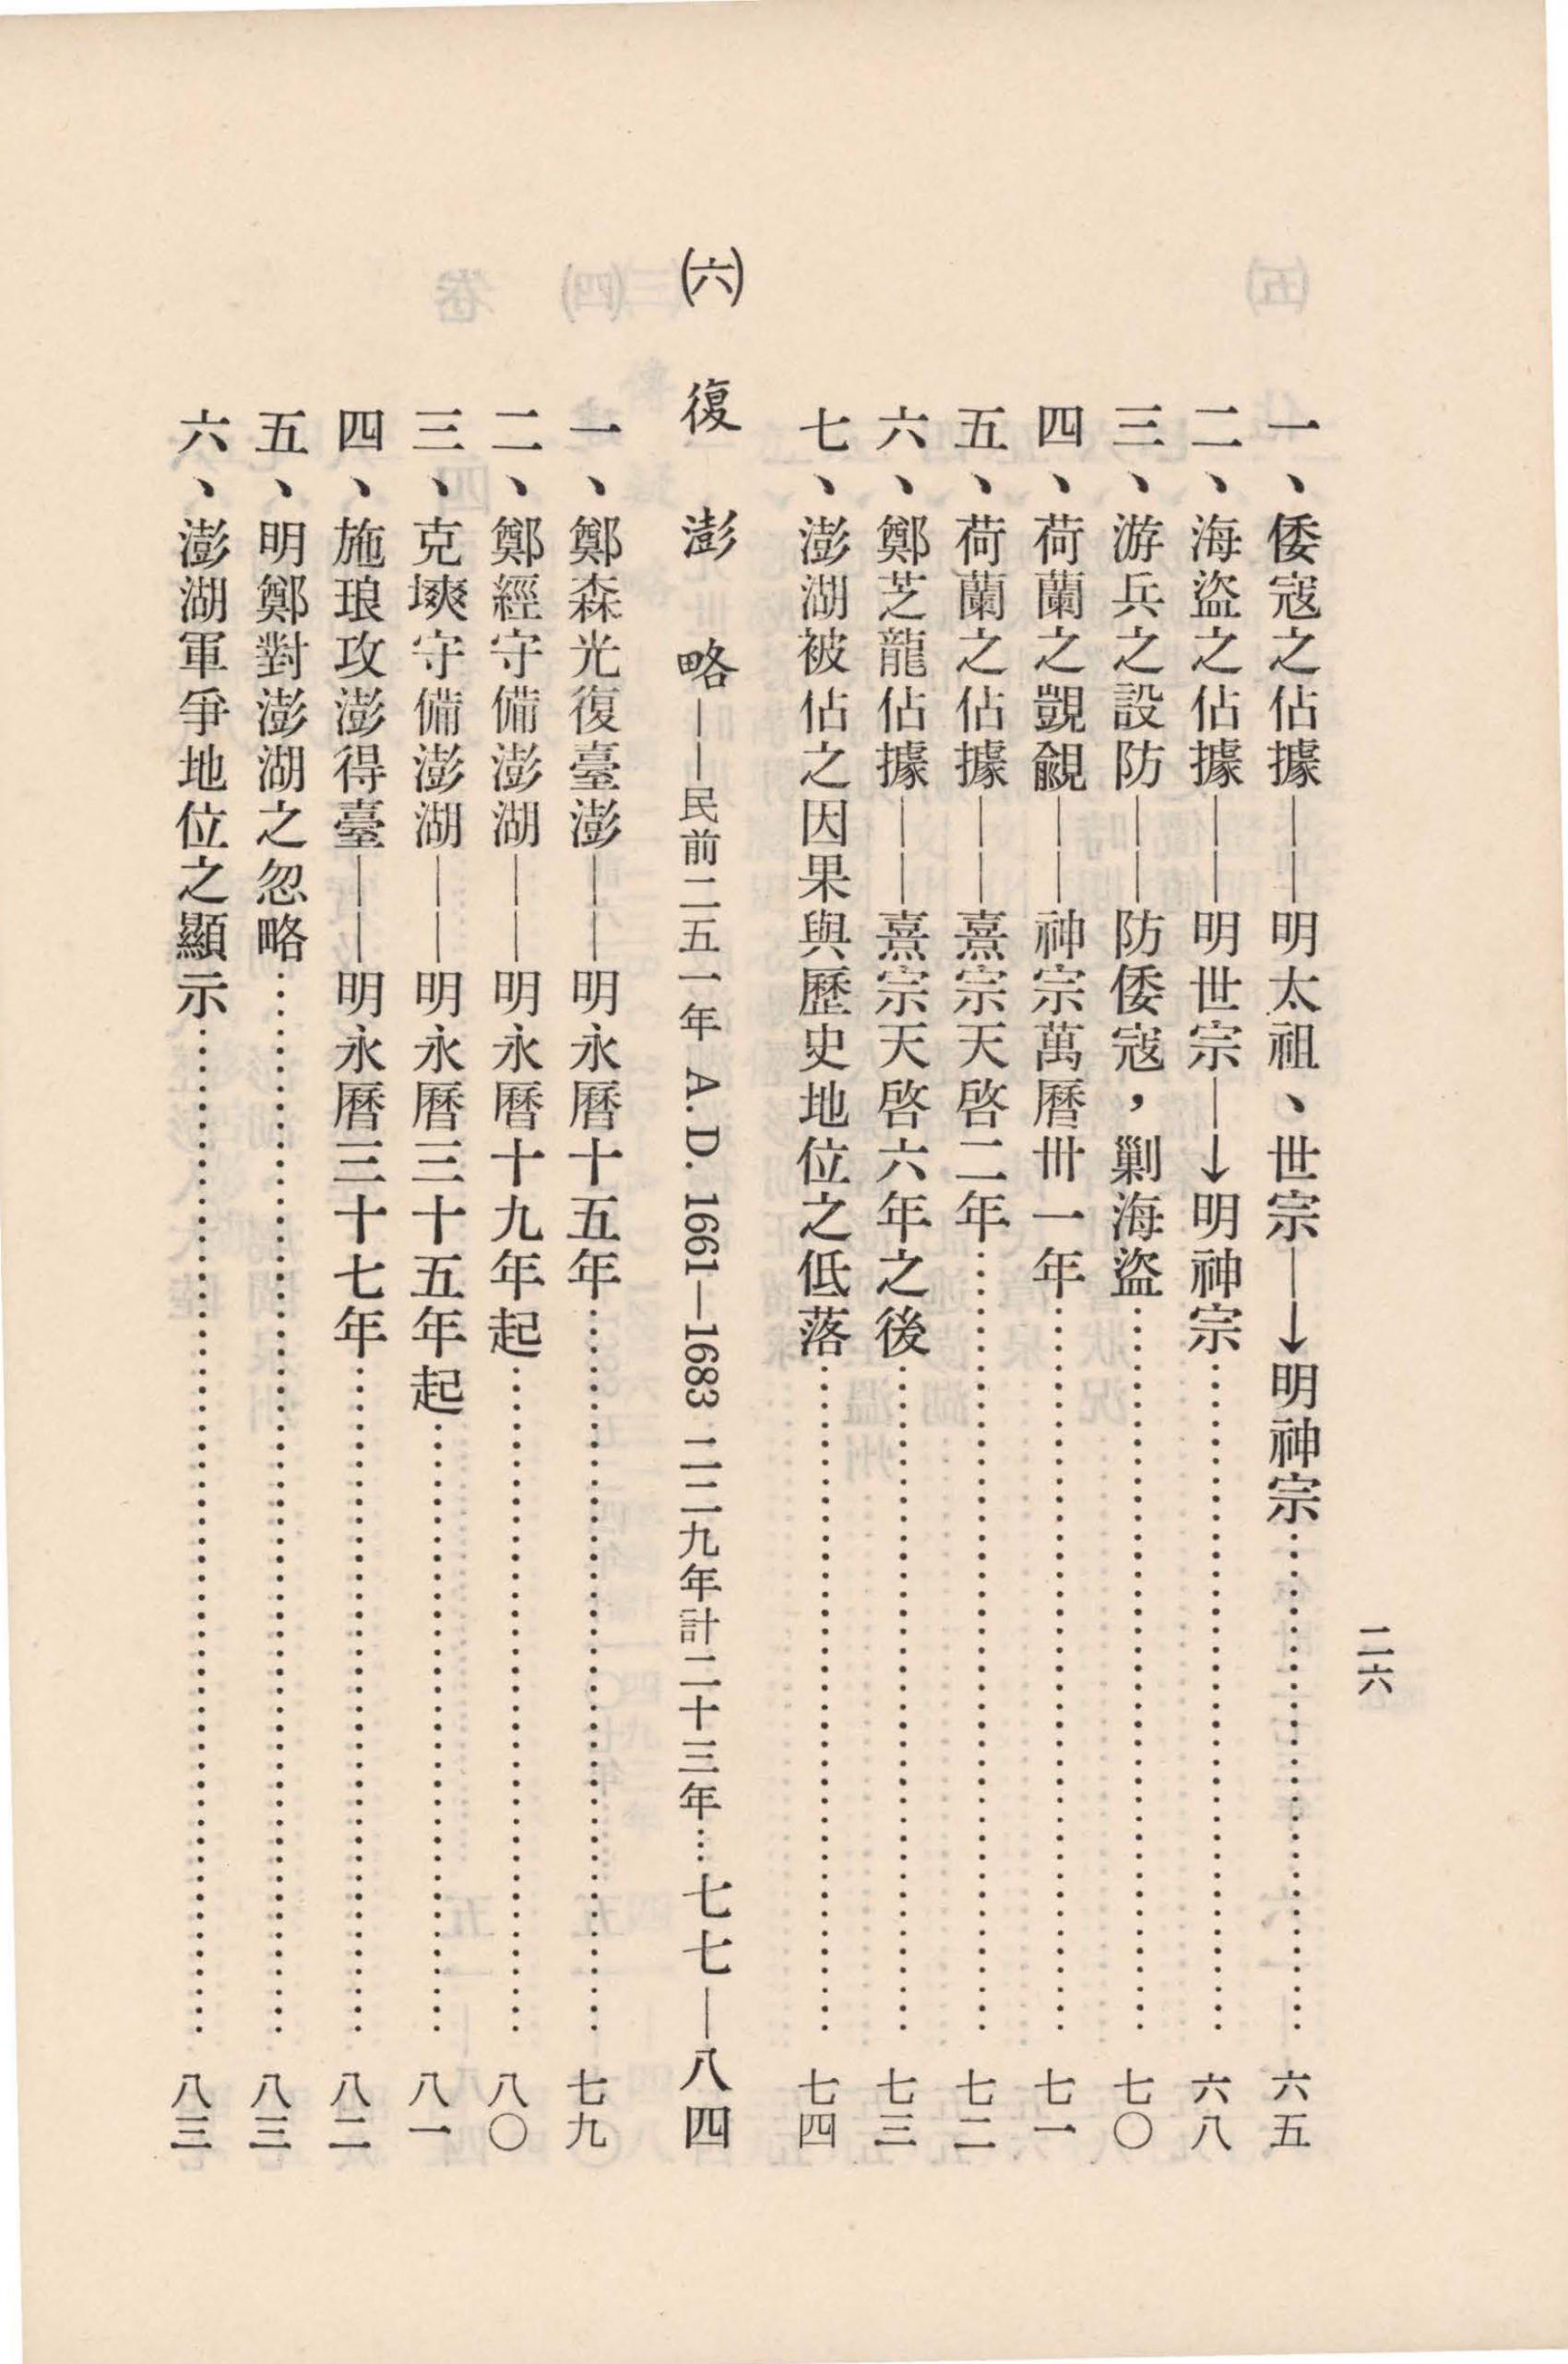 二六
一、倭寇之佔據——明太祖、世宗—→明神宗……六五
二、海盜之佔據——明世宗—→明神宗……六八
三、游兵之設防——防倭寇，剿海盜……七〇
四、荷蘭之覬覦——神宗萬曆卅一年……七一
五、荷蘭之佔據——熹宗天啓二年……七二
六、鄭芝龍佔據——熹宗天啓六年之後……七三
七、澎湖被佔之因果與歷史地位之低落……七四
㈥ 復澎略——民前二五一年 A.D. 1661—1683 二二九年計二十三年…七七—八四
一、鄭森光復臺澎——明永曆十五年……七九
二、鄭經守備澎湖——明永曆十九年起……八〇
三、克塽守備澎湖——明永曆三十五年起……八一
四、施琅攻澎得臺——明永曆三十七年……八二
五、明鄭對澎湖之忽略……八三
六、澎湖軍爭地位之顯示……八三